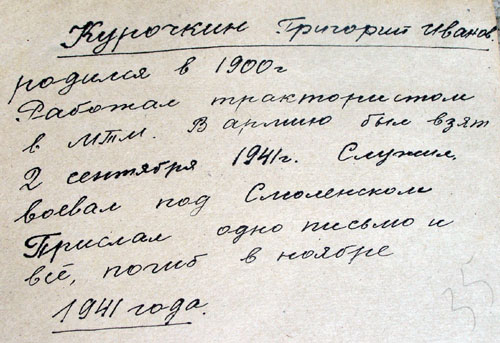 Курочкин Григорий Иванов.
родился в 1900г
Работал трактористом
в МТМ. В армию был взят
2 сентября 1941г. Служил,
воевал под Смоленском
Прислал одно письмо и
всё, погиб в ноябре
1941 года.
35